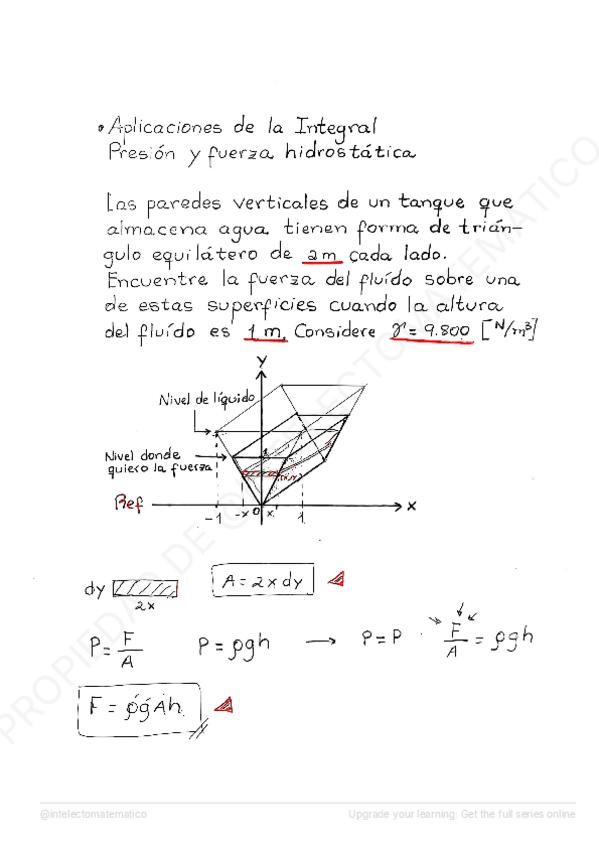 • Aplicaciones de la Integral
Presión y fuerza hidrostática
Las paredes verticales de un tanque que
almacena agua tienen forma de trián-
gulo equilátero de 2m cada lado.
Encuentre la fuerza del fluído sobre una
de estas superficies cuando la altura
del fluído es 1 m. Considere γ = 9.800 [N/m³]
Y
Nivel de líquido
Nivel donde
quiero la fuerza
(x,y)
Ref
-1 -x O x 1 X
dy 2x A = 2x dy
P = F/A P = ρgh → P = P F/A = ρgh
F = ρgAh
PROPIEDAD DE @INTELECTOMATEMATICO
@intelectomatematico
Upgrade your learning: Get the full series online